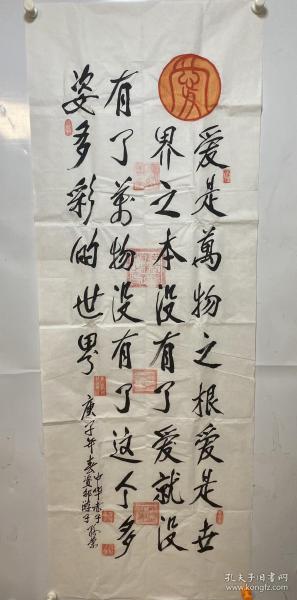 爱是萬物之根爱是世
界之本没有了爱就没
有了萬物没有了这个多
姿多彩的世界
庚子年春
中华赤子
孔夫子旧书网